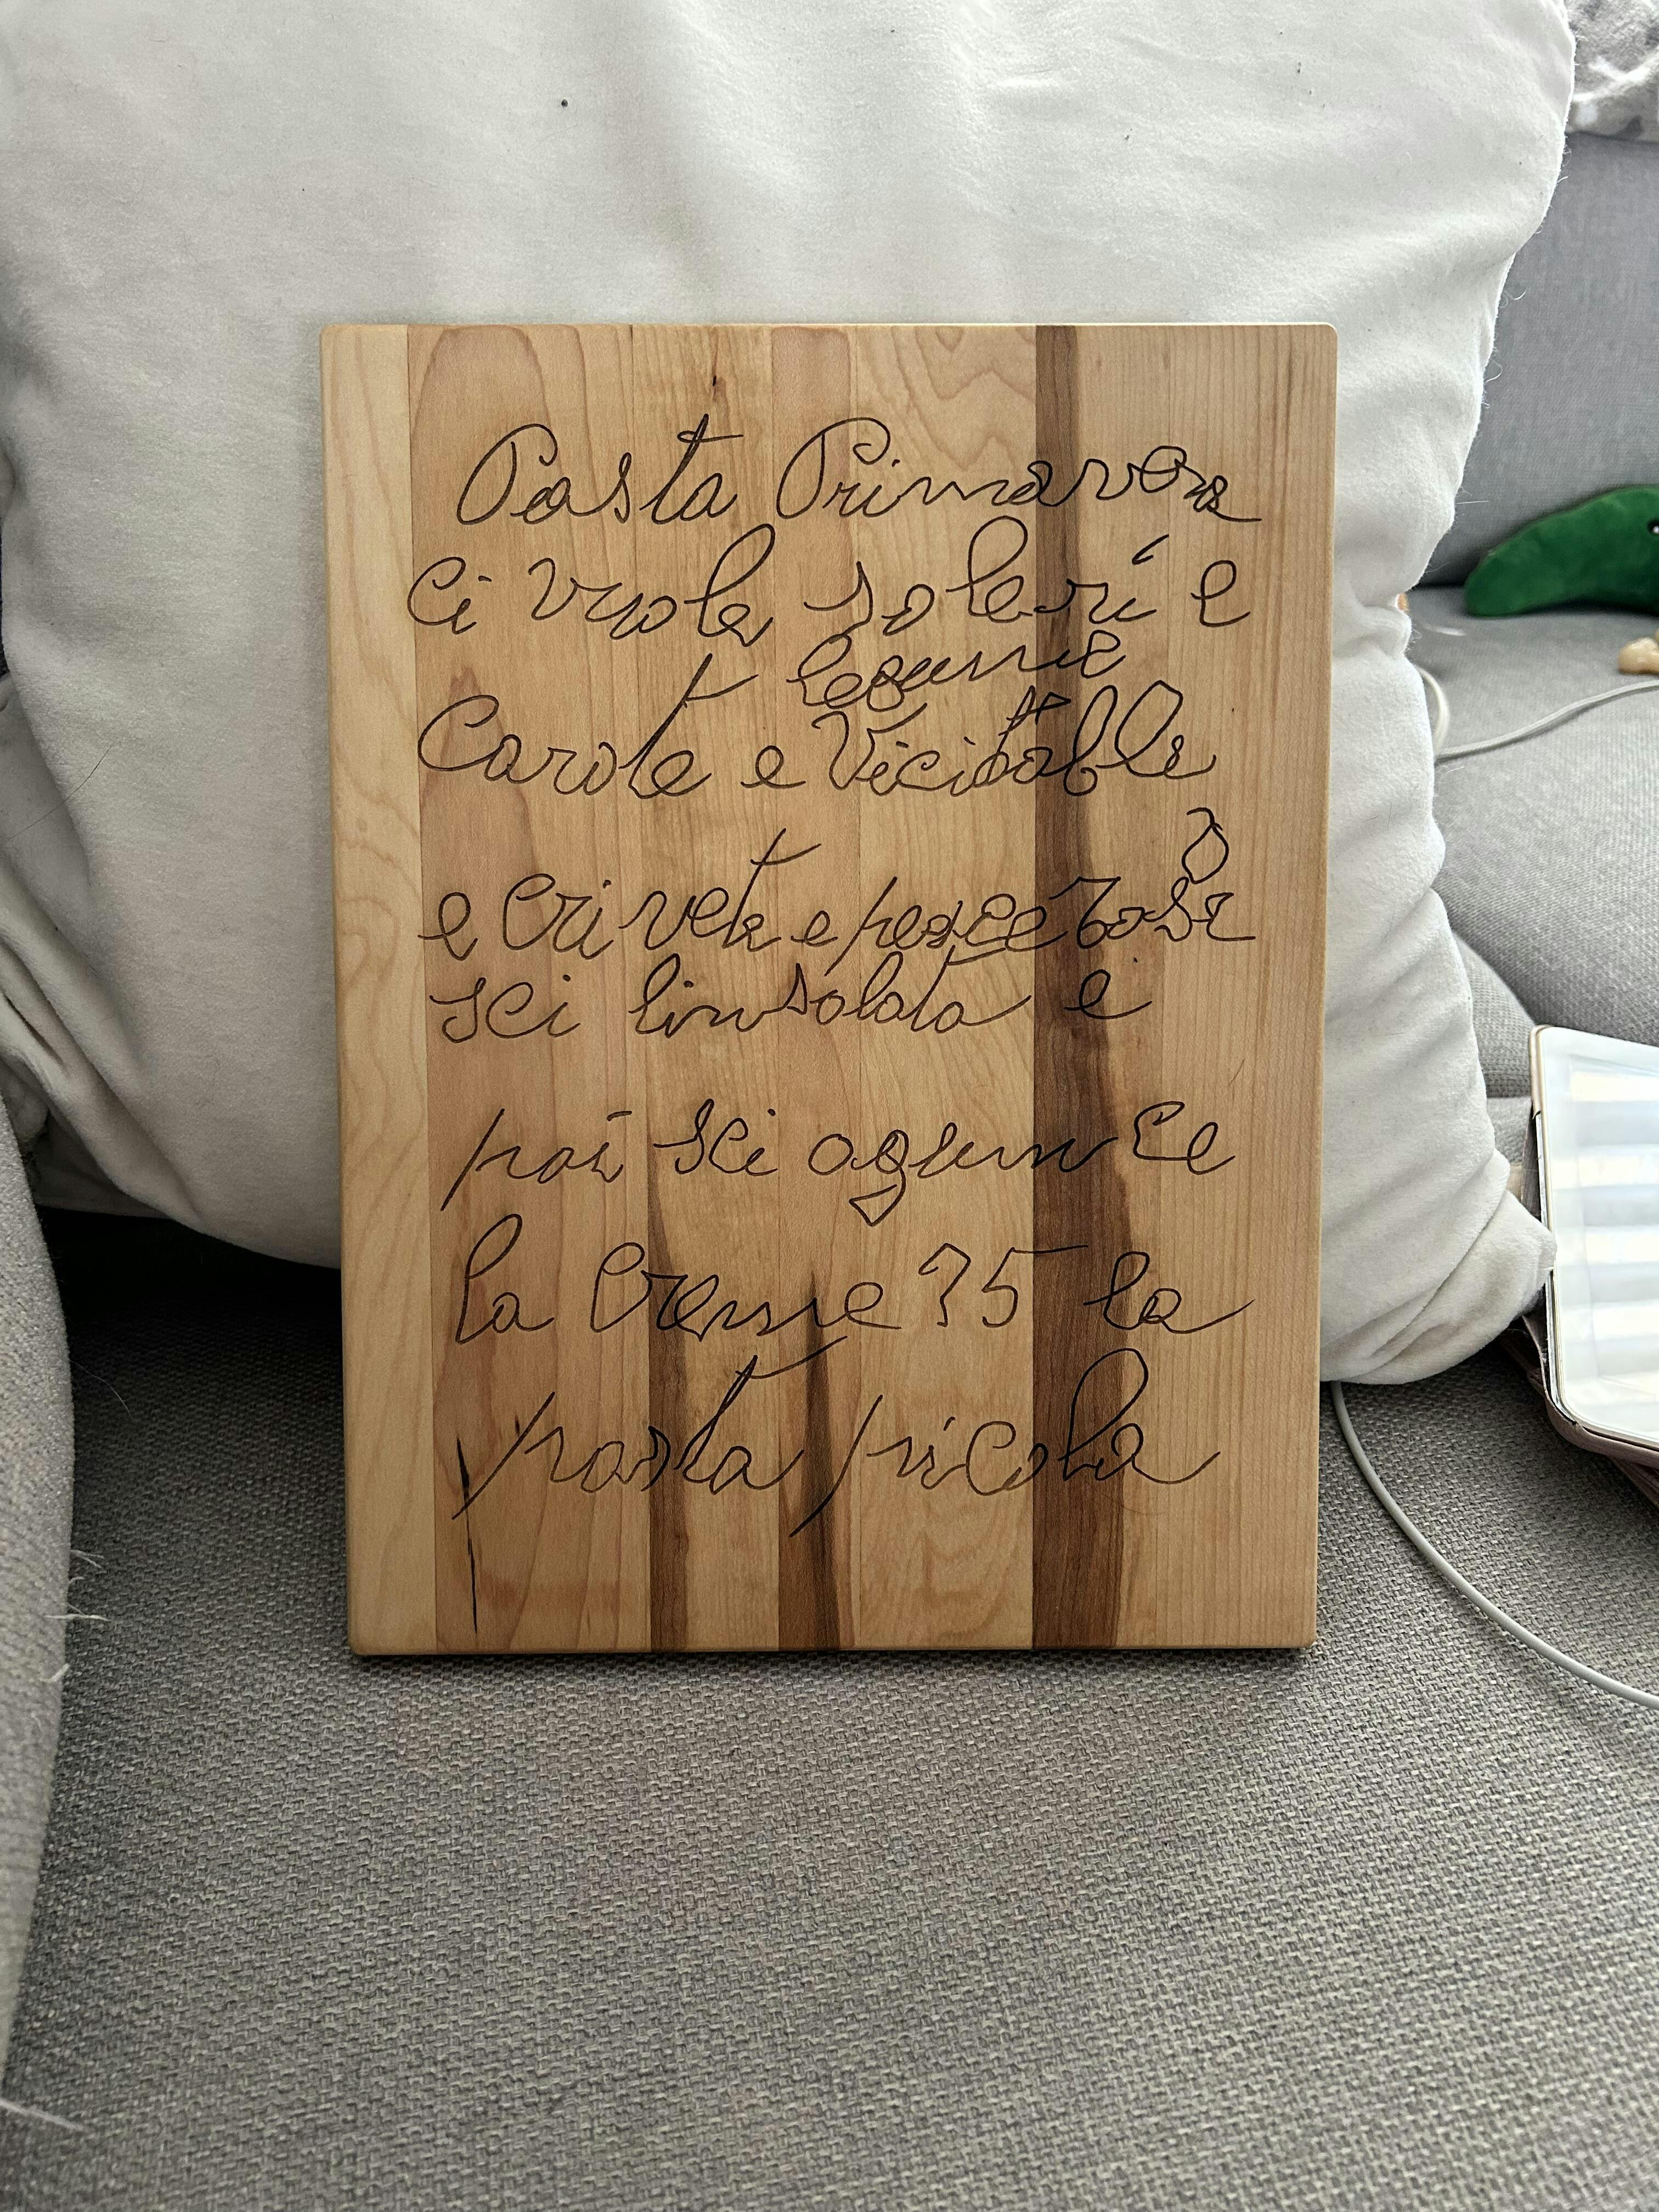 Pasta Primavera
Ci vuole soleri e
legume
Carote e Vicitable
e Crivete e pesce
sei linsolata e
poi sei agunce
la Creme 35 la
pasta picola